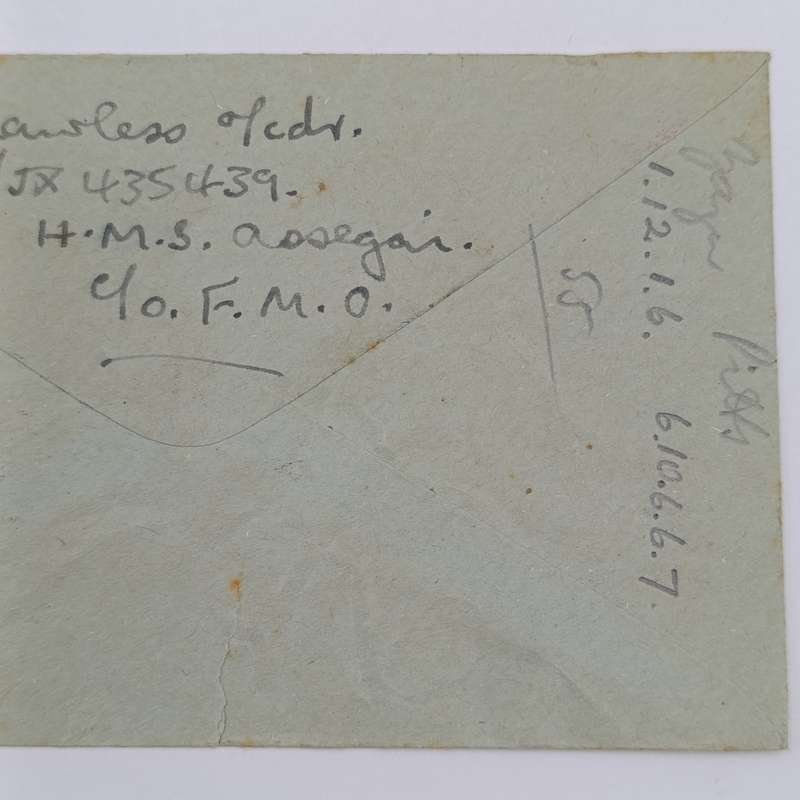 awless o/cdr.
/JX 435439.
H.M.S. assegai.
C/o. F.M.O.
55
1.12.1.6. 6.10.6.6.7.
Pitts